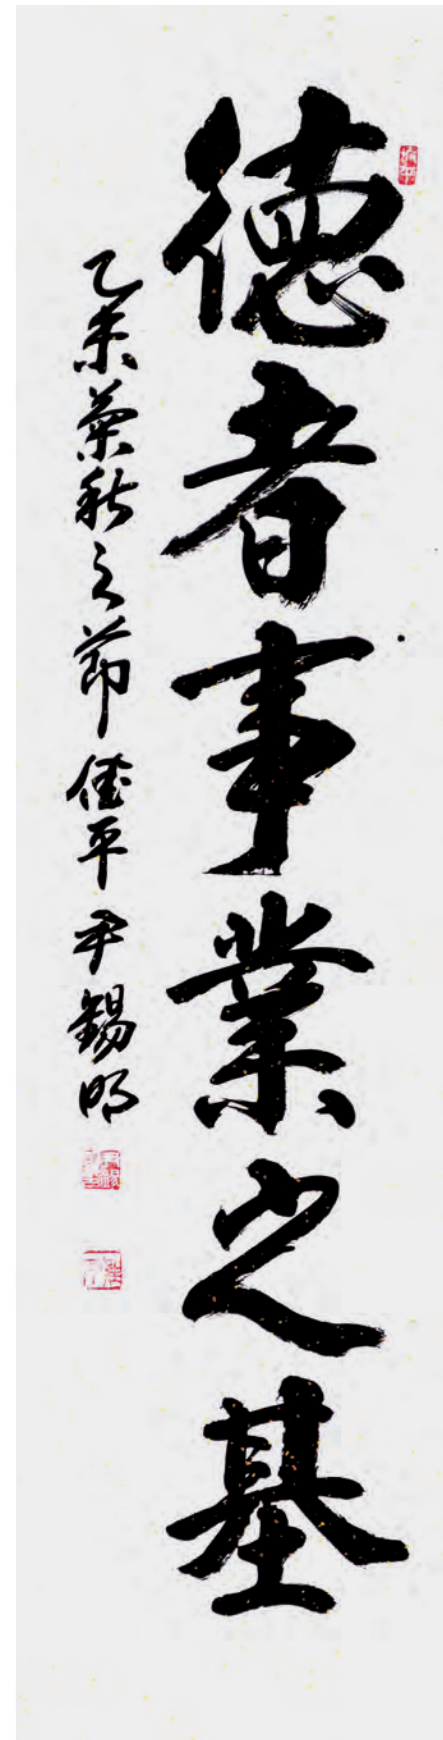 德者事業之基
乙未菊秋之節 佳平 尹錫明